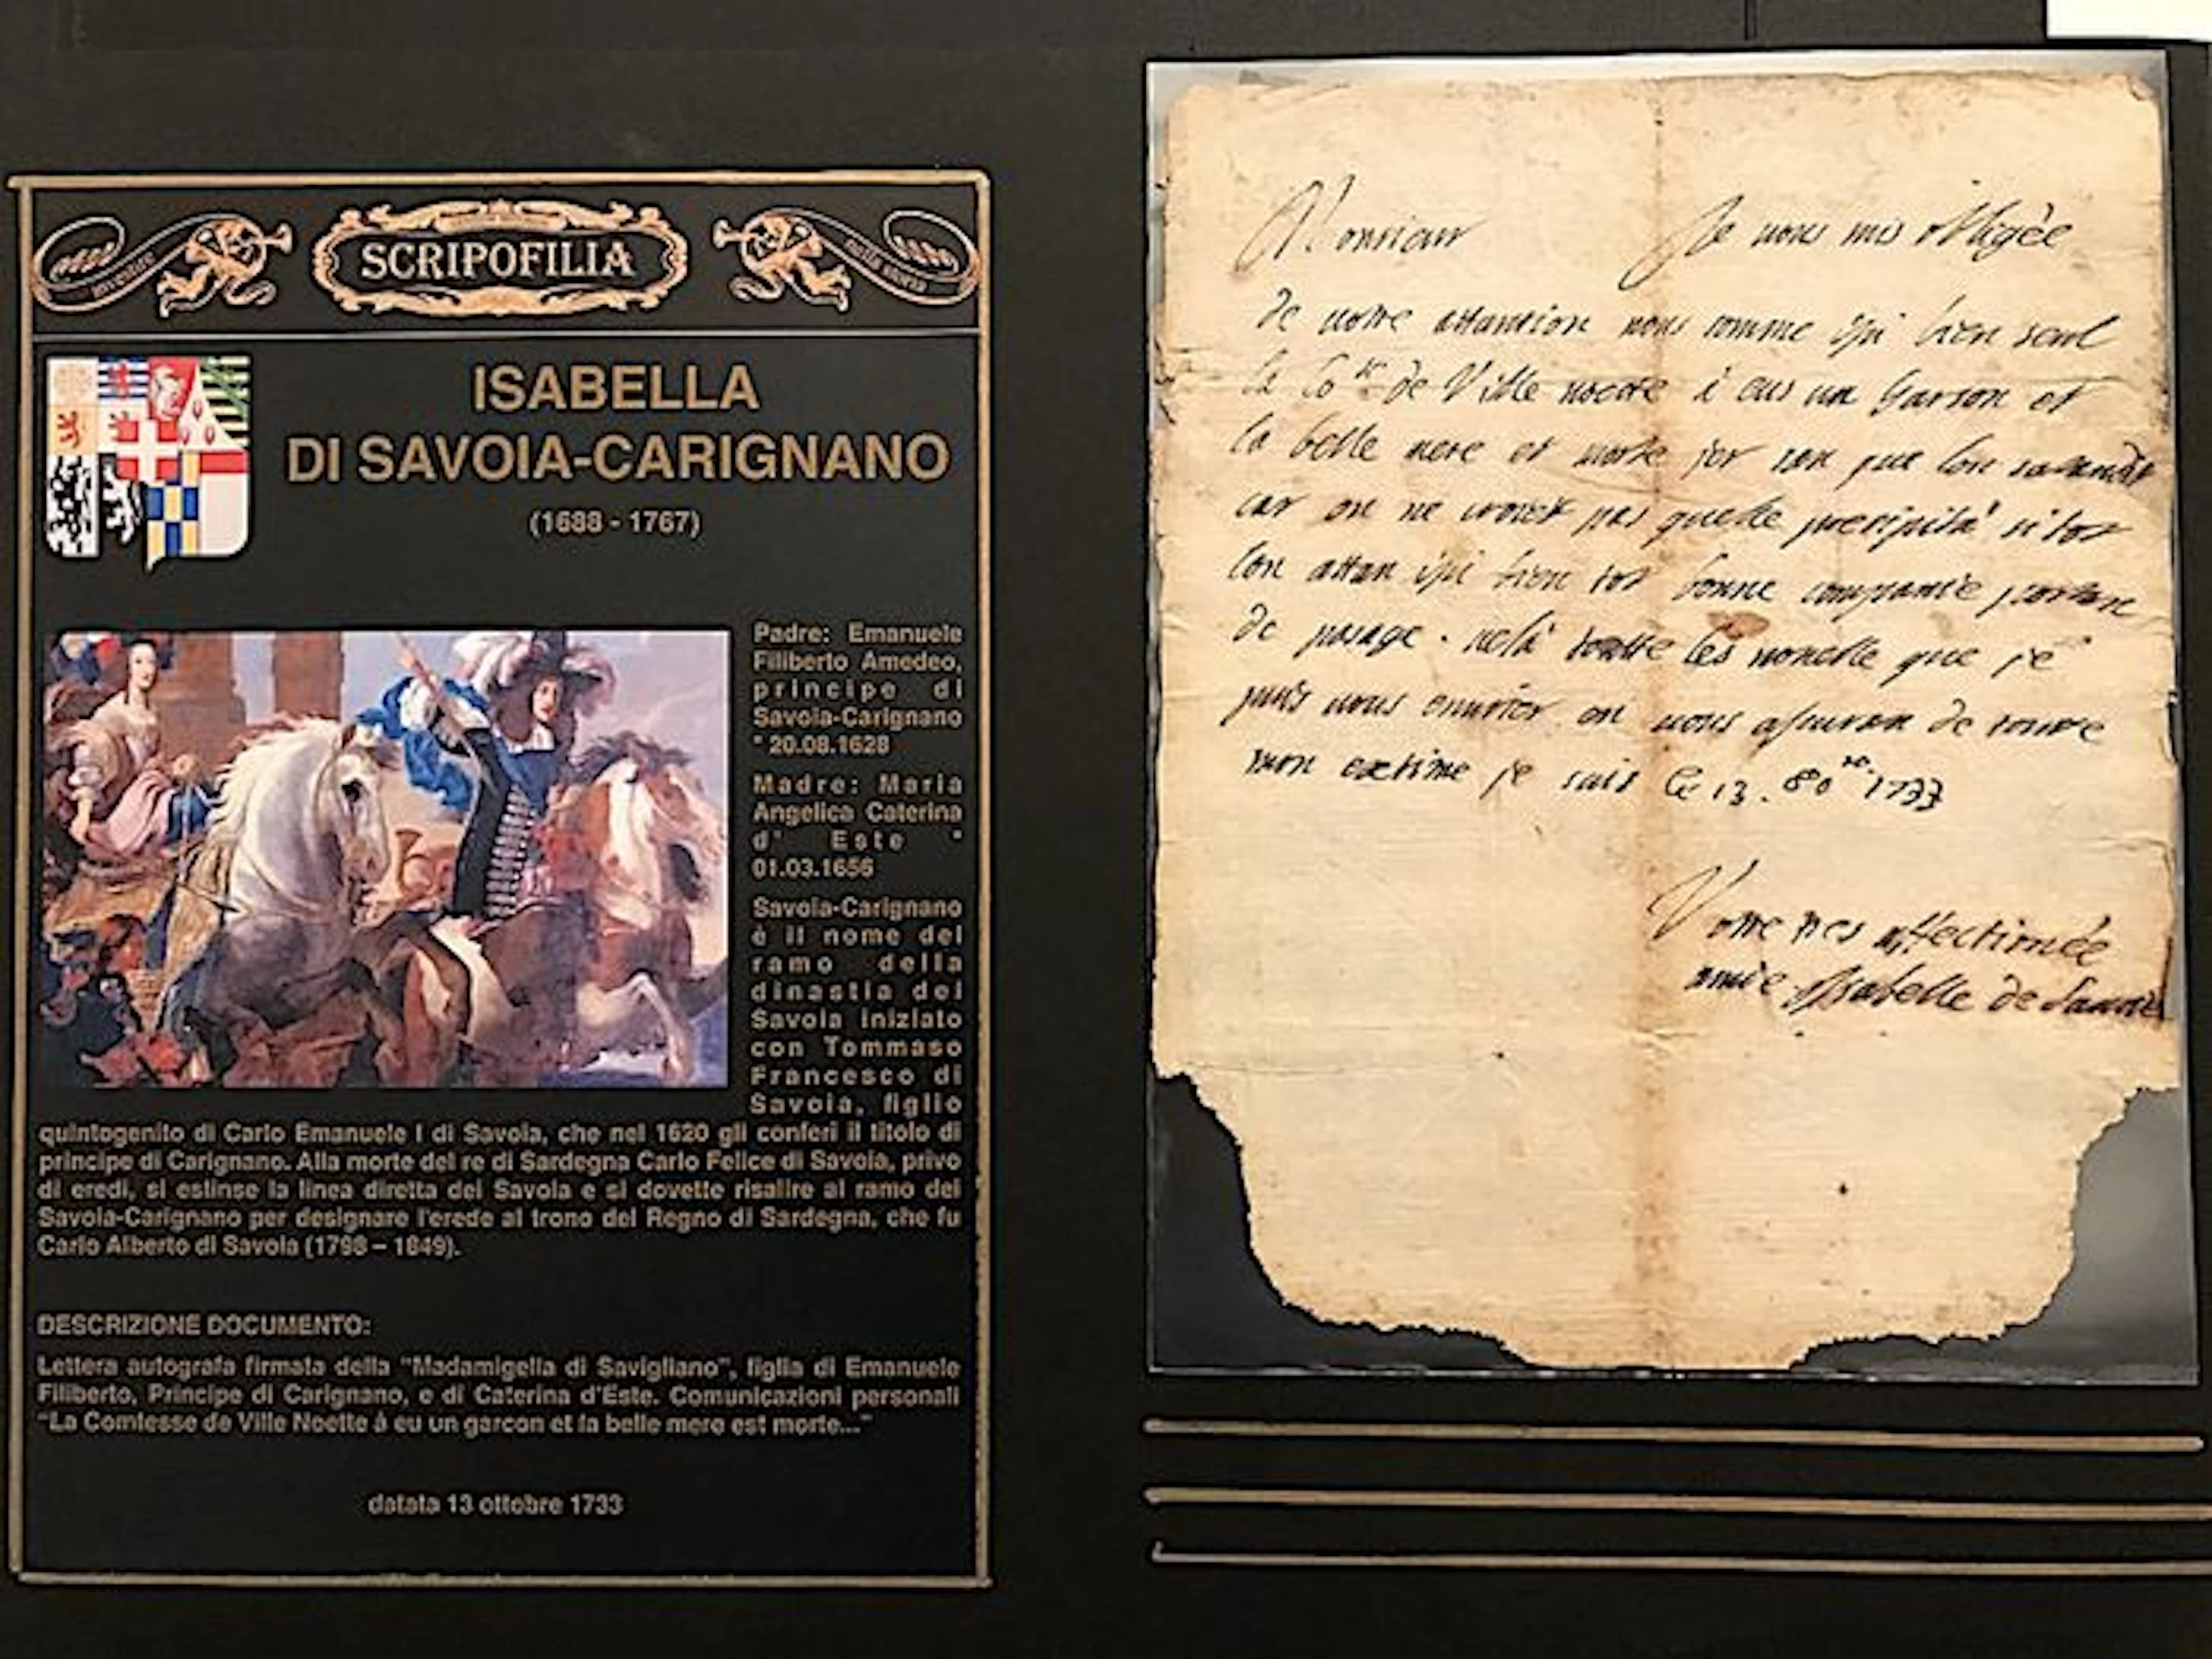 SCRIPOFILIA
ISABELLA
DI SAVOIA-CARIGNANO
(1688 - 1767)
Padre: Emanuele
Filiberto Amedeo,
principe di
Savoia-Carignano
* 20.08.1628
Madre: Maria
Angelica Caterina
d' Este *
01.03.1656
Savoia-Carignano
è il nome del
ramo della
dinastia dei
Savoia iniziato
con Tommaso
Francesco di
Savoia, figlio
quintogenito di Carlo Emanuele I di Savoia, che nel 1620 gli conferì il titolo di
principe di Carignano. Alla morte del re di Sardegna Carlo Felice di Savoia, privo
di eredi, si estinse la linea diretta dei Savoia e si dovette risalire al ramo dei
Savoia-Carignano per designare l'erede al trono del Regno di Sardegna, che fu
Carlo Alberto di Savoia (1798 – 1849).
DESCRIZIONE DOCUMENTO:
Lettera autografa firmata della "Madamigella di Savigliano", figlia di Emanuele
Filiberto, Principe di Carignano, e di Caterina d'Este. Comunicazioni personali
"La Comtesse de Ville Noette à eu un garcon et la belle mere est morte..."
datata 13 ottobre 1733
Monsieur Je vous mis obligée
de votre attantion nous comme ysi bien seul
la Co de Ville noette à eus un Garson et
la belle mere et morte ier san que lon
car on ne croiet pas quelle presipità si tot
lon attan ysi bien tot bonne companie
de pasage. voilà toutte les novelle que je
puis vous envoier en vous assuran de toutte
mon extime je suis Ce 13. 8o re 1733
Votre tres affectionée
amie Isabelle de Savoie